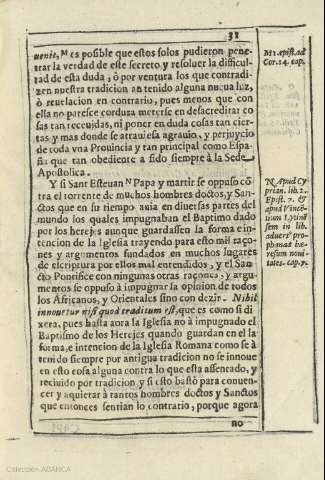 31
uenit, M es posible que estos solos pudieron pene-
trar la verdad de este secreto, y resoluer la dificul-
tad de esta duda, ò por ventura los que contradi-
zen nuestra tradicion an tenido alguna nueua luz,
ò reuelacion en contrario, pues menos que con
ella no paresce cordura meterse en desacreditar co
sas tan receuidas, ni poner en duda cosas tan cier-
tas y mas donde se atrauiesa agrauio, y perjuycio
de toda vna Prouincia y tan principal como Espa-
ña que tan obediente a sido siempre à la Sede
Apostolica.
Y si Sant Esteuan N Papa y martir se oppuso cõ
tra el torrente de muchos hombres doctos, y San-
ctos que en su tiempo auia en diuersas partes del
mundo los quales impugnaban el Baptismo dado
por los herejes aunque guardassen la forma e in-
tencion de la Iglesia trayendo para esto mil raço-
nes y argumentos fundados en muchos lugares
de escriptura por ellos mal entendidos, y el San-
cto Pontifice con ningunas otras raçones, y argu-
mentos se oppuso à impugnar la opinion de todos
los Africanos, y Orientales sino con dezir. Nihil
innouetur nisi quod traditum est, que es como si di
xera, pues hasta aora la Iglesia no à impugnado el
Baptismo de los Herejes quando guardan en el la
forma, e intencion de la Iglesia Romana como se à
tenido siempre por antigua tradicion no se innoue
en esto cosa alguna contra lo que esta assentado, y
reciuido por tradicion, y si esto bastò para conuen-
cer y aquietar à tantos hombres doctos y Sanctos
que entonces sentian lo contrario, porque agora
no
M 1. epist. ad
Cor. 14. cap.
N Apud Cy
prian. lib. 2.
Epist. 7. &
apud Vincē-
lib. aduers° pro-
phanas hæ-
resum noui-
tates. cap. 7.
Colección ABANCA